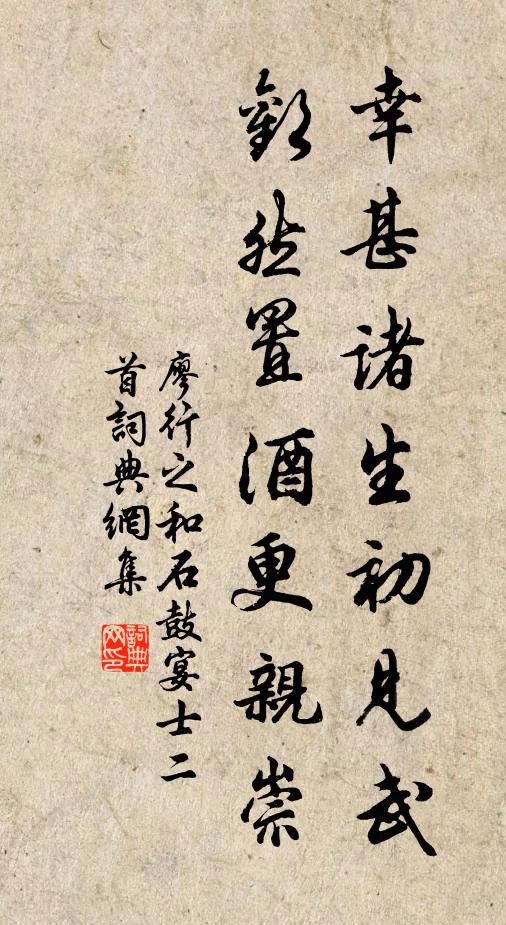 幸甚諸生初見武
歡然置酒更親崇
廖行之和石鼓宴士二
首詞典網集
詞典
网印